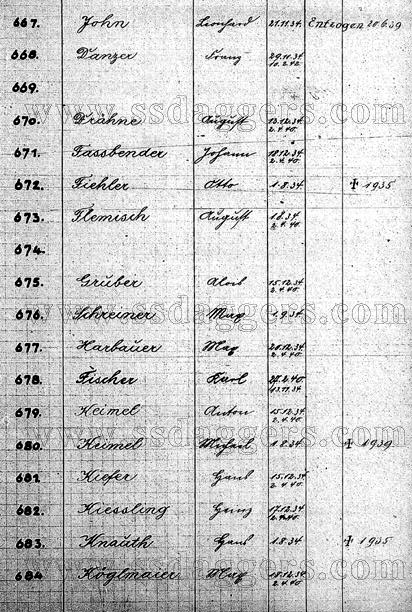 667. John Leonhard 21.11.34. Entzogen 20.6.39
668. Danzer Franz 29.11.34 10.2.42
669.
www.ssdaggers.com
670. Drahne August 13.12.34 2.4.40.
671. Fassbender Johann 18.12.34 2.4.40.
672. Fiehler Otto 1.8.34 ✝ 1935
673. Flemisch August 1.8.34 2.4.40.
674.
675. Gruber Alois 15.12.34 2.4.40.
www.ssdaggers.com
676. Schreiner Max 1.9.34
677. Harbauer Max 20.12.34 2.4.40.
678. Fischer Karl
679. Keimel Anton 15.12.34 2.4.40.
www.ssdaggers.com
680. Keimel Michael 1.8.34 ✝ 1939
681 Kiefer Hans 15.12.34 2.4.40.
682. Kiessling 17.12.34 2.4.40.
683. Knauth Hans 1.8.34 ✝ 1935
www.ssdaggers.com
684 Köglmaier Max 18.12.34 2.4.40.